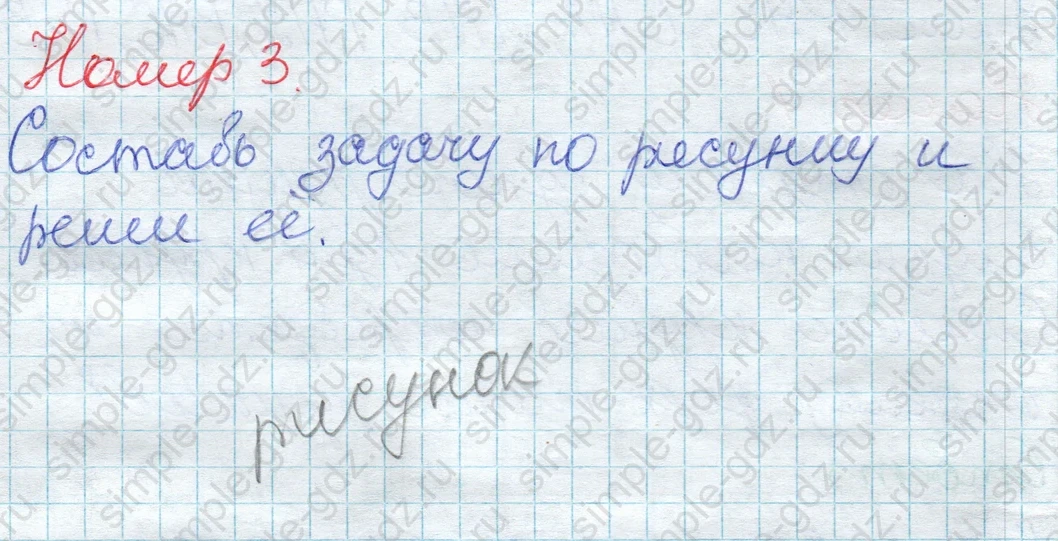 Номер 3.
Составь задачу по рисунку и
реши её.
рисунок
simple-gdz.ru